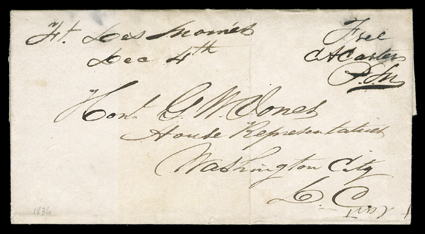 Ft. Des Moines
Dec 4th
Free
P.M
Honl G. W. Jones
House Representatives
Washington City
D C
1836